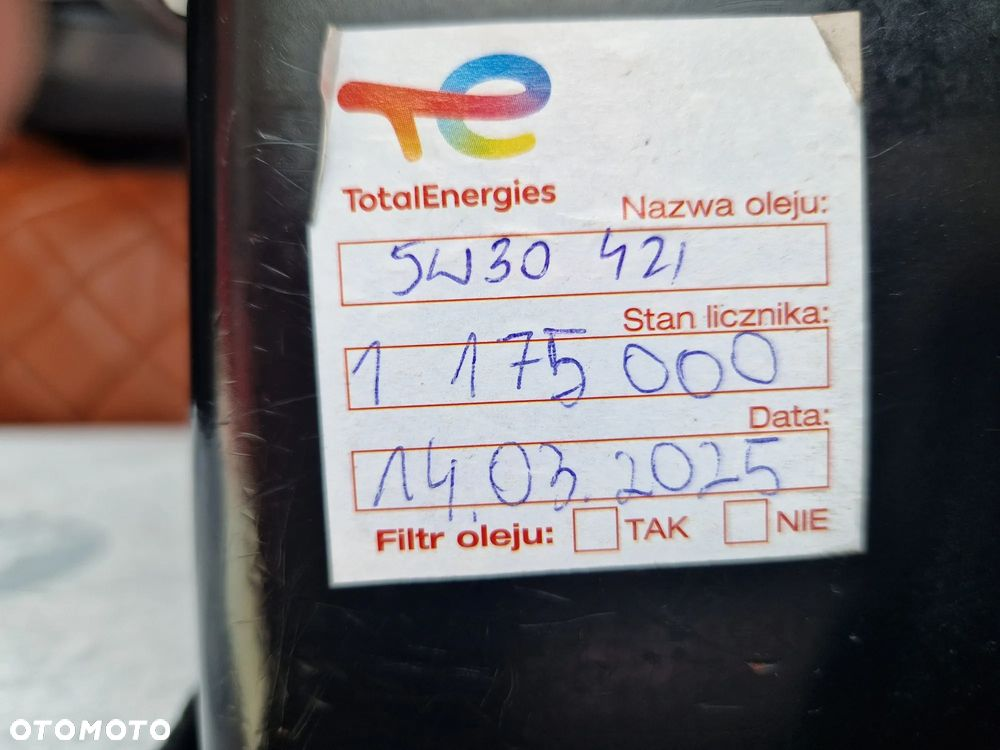 TotalEnergies
Nazwa oleju:
5W30 42l
Stan licznika:
1 175 000
Data:
14.03.2025
Filtr oleju: TAK NIE
OTOMOTO